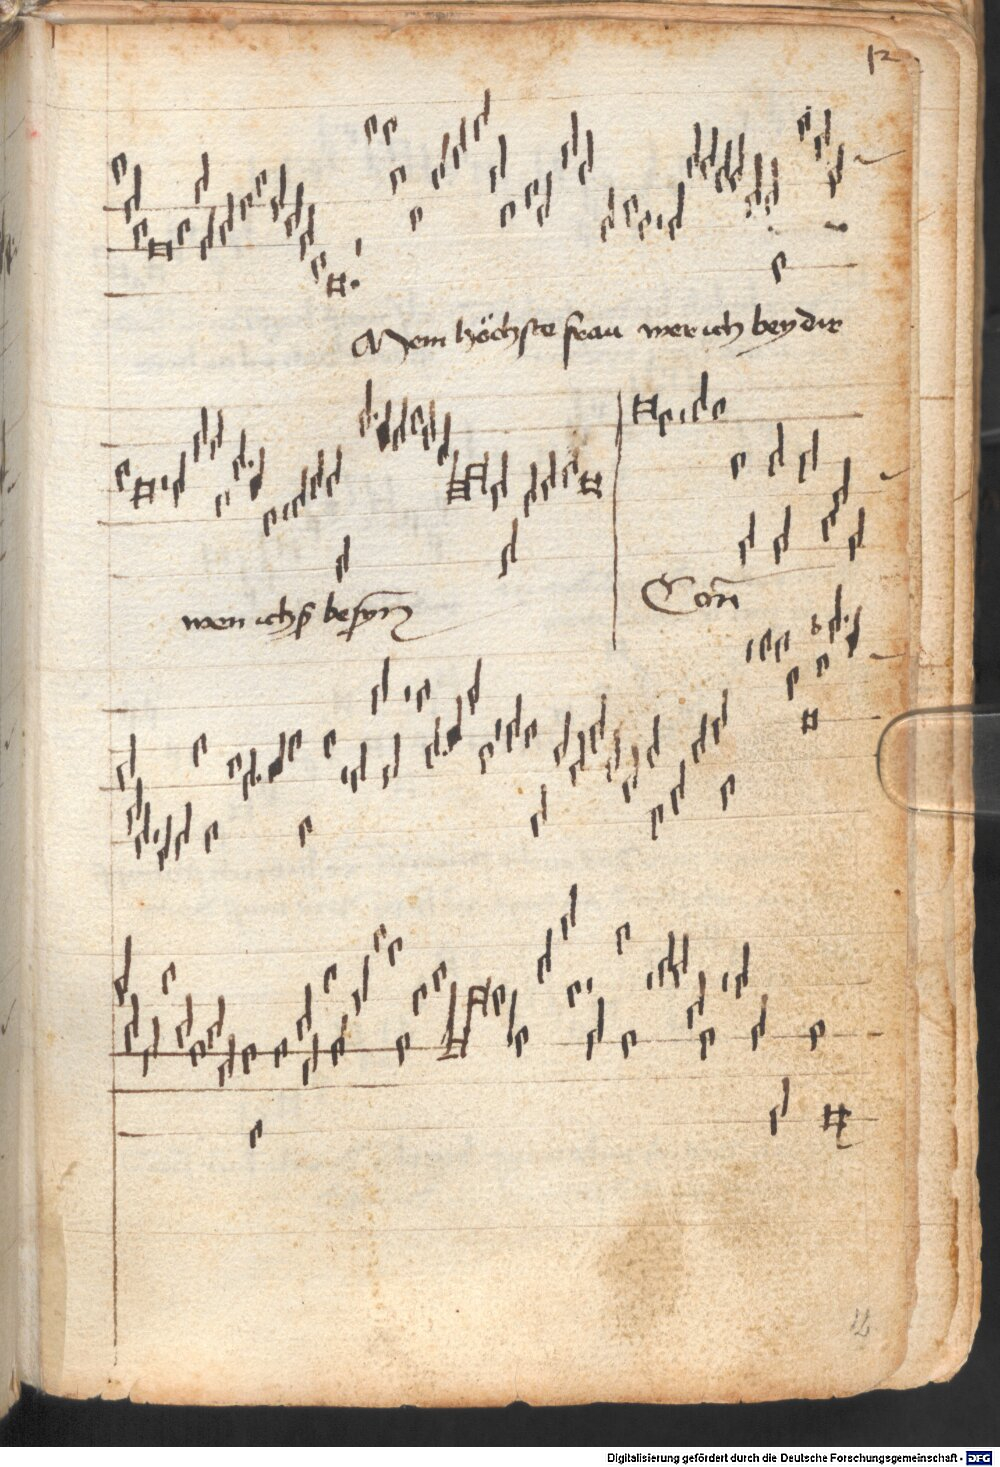 12
Mein höchste frau wer ich bey dir
wen ichs besynn
Con
12
Digitalisierung gefördert durch die Deutsche Forschungsgemeinschaft - DFG